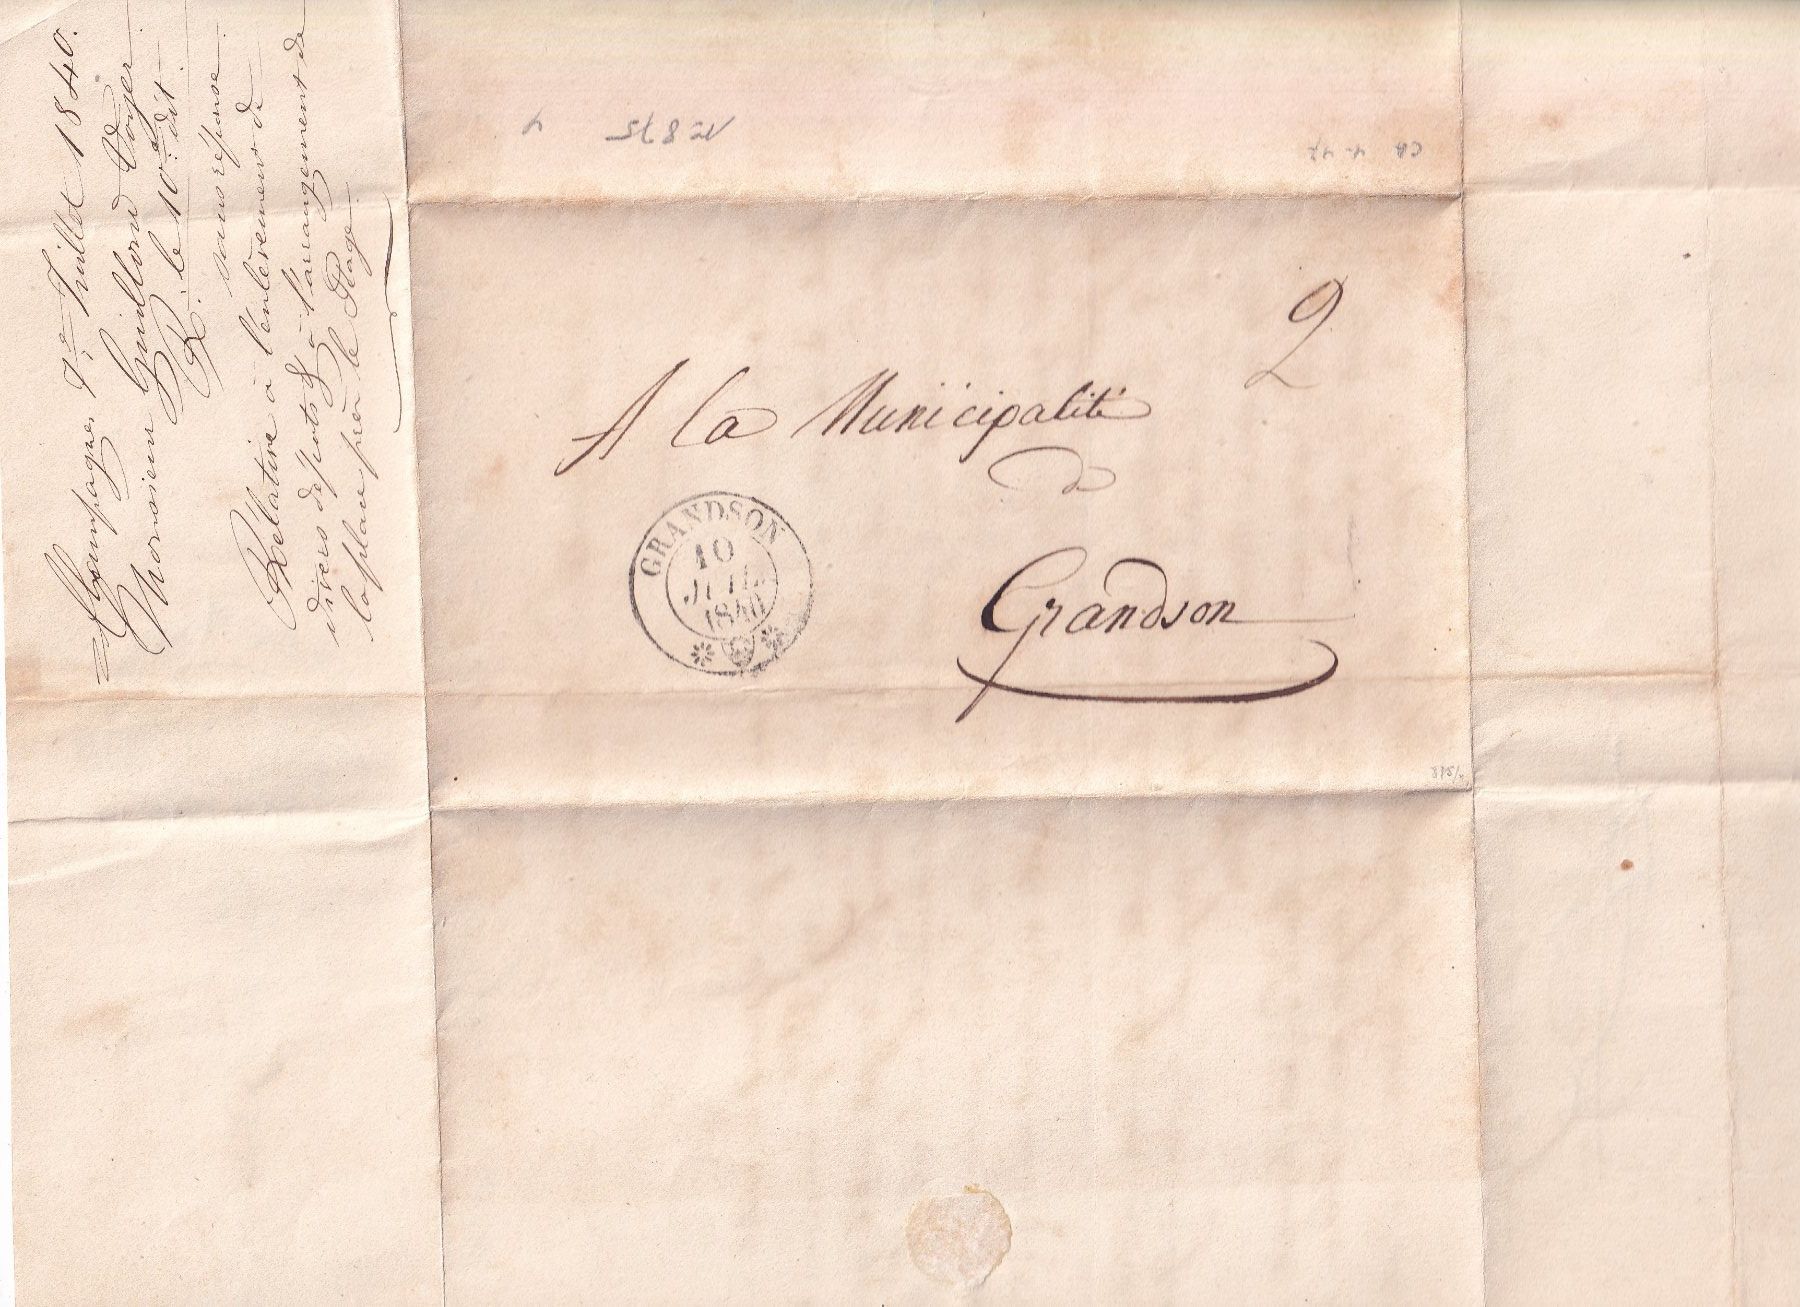 Champagne, 7e Juillet 1840.
Monsieur Guilloud Voyer
R. le 10e dit.
sans réponse.
Rellative à l'enlèvement de
divers dépots & à l'arrangement de
la place près le Port.
2
A la Municipalité
de
Grandson
GRANDSON
10
JUIL
1840